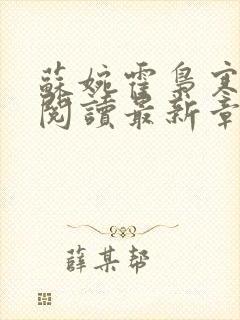 蘇婉霍梟寒
閱讀最新章
薛某幫